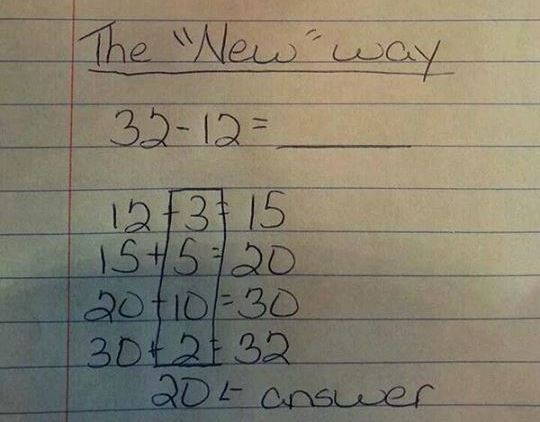 The "New" way
32-12=______
12+3=15
15+5=20
20+10=30
30+2=32
20← answer